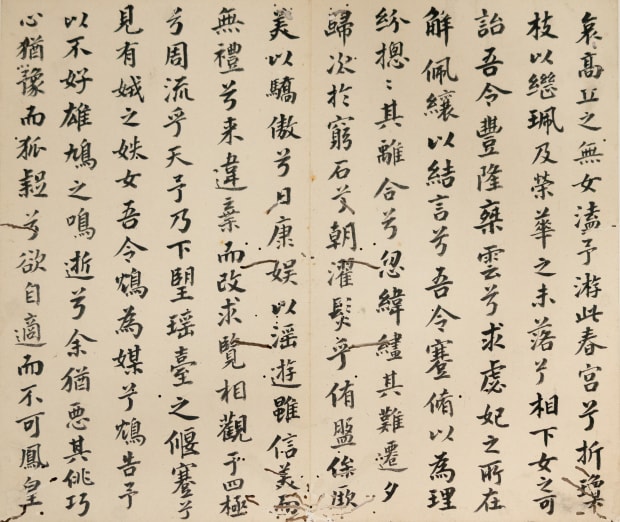 哀高丘之無女溘予游此春宮兮折瓊
枝以繼珮及榮華之未落兮相下女之可
詒吾令豐隆椉雲兮求虙妃之所在
解佩纕以結言兮吾令蹇脩以為理
紛摠〻其離合兮忽緯繣其難遷夕
歸次於窮石兮朝濯髮乎洧盤保厥
美以驕傲兮日康娛以滛遊雖信美而
無禮兮来違棄而改求覽相觀于四極
兮周流乎天予乃下望瑤臺之偃蹇兮
見有娀之妷女吾令鴆為媒兮鴆告予
以不好雄鳩之鳴逝兮余猶惡其佻巧
心猶豫而狐疑兮欲自適而不可鳳皇